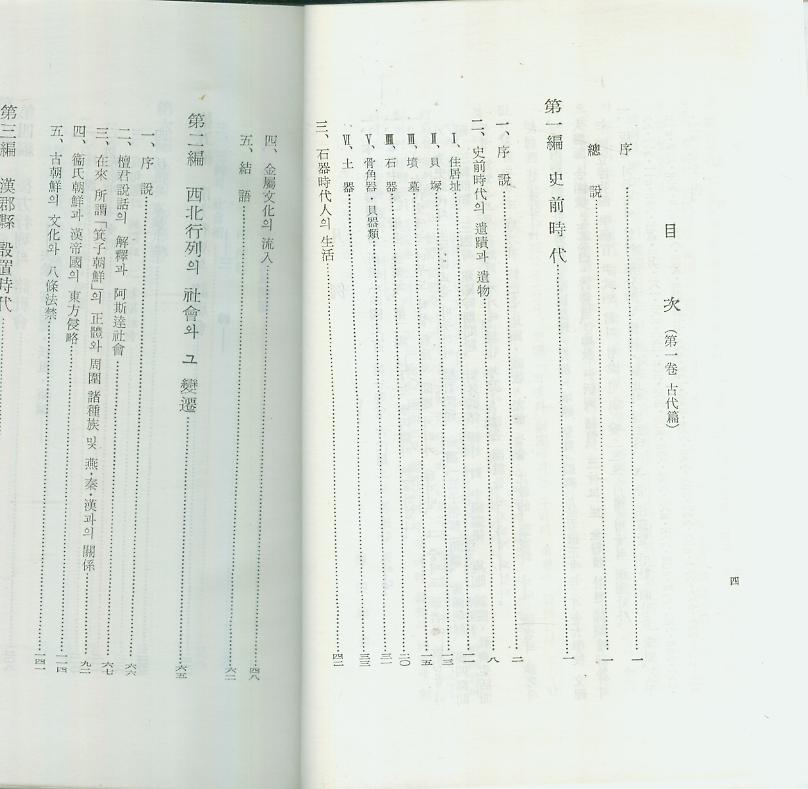 四
目 次 (第一卷 古代篇)
序 一
總 說 一
第一編 史前時代 一
一、序 說 二
二、史前時代의 遺蹟과 遺物 八
Ⅰ、住居址 一一
Ⅱ、貝 塚 一三
Ⅲ、墳 墓 一五
Ⅲ、石 器 二〇
Ⅴ、骨角器·貝器類 三一
Ⅵ、土 器 三三
三、石器時代人의 生活 四二
四、金屬文化의 流入 四八
五、結 語 六二
第二編 西北行列의 社會와 그 變遷 六五
一、序 說 六六
二、檀君說話의 解釋과 阿斯達社會 六七
三、在來 所謂「箕子朝鮮」의 正體와 周圍 諸種族 및 燕·秦·漢과의 關係 九二
四、衞氏朝鮮과 漢帝國의 東方侵略 一一四
五、古朝鮮의 文化와 八條法禁 一四一
第三編 漢郡縣 設置時代